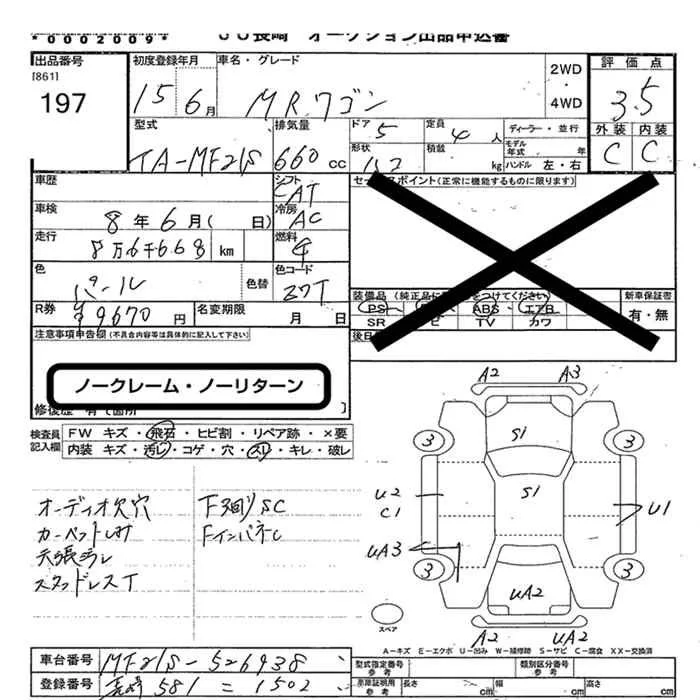 *0002009*
JU長崎 オークション出品申込書
出品番号
[861]
197
初度登録年月
15年 6月
車名・グレード
MRワゴン
2WD
・
4WD
評価点
3.5
外装 内装
C C
型式
TA-MF21S
排気量
660 cc
ドア
5
定員
4人
ディーラー・並行
形状
積載
kg
モデル年式 年
ハンドル 左・右
車歴
シフト
CAT
セールスポイント(正常に機能するものに限ります)
車検
8年6月( 日)
冷房
AC
走行
8万6千668 km
燃料
色
パール
色替
色コード
Z7T
装備品 (純正品に
をつけてください)
PS
ABS エアB
SR
TV カワ
新車保証書
有・無
R券
¥9670円
名変期限
月 日
注意事項申告欄(不具合内容等は具体的に記入して下さい)
ノークレーム・ノーリターン
修復歴 有 て箇所
検査員記入欄
FW キズ・飛石・ヒビ割・リペア跡・×要
内装 キズ・汚レ・コゲ・穴・スレ・キレ・破レ
オーディオ欠穴
カーペット
天張ヨゴレ
スタッドレスT
F3回りSC
FインパネC
A2 A3
3 3
S1
S1
U2
C1
U1
UA3
3 3
UA2
A2 UA2
スペア
A-キズ E-エクボ U-凹み W-補修跡 S-サビ C-腐食 XX-交換済
車台番号
MF21S-526938
登録番号
長崎 581 = 1502
型式指定番号
類別区分番号
車検証明用参考
長さ cm
幅 cm
高さ cm